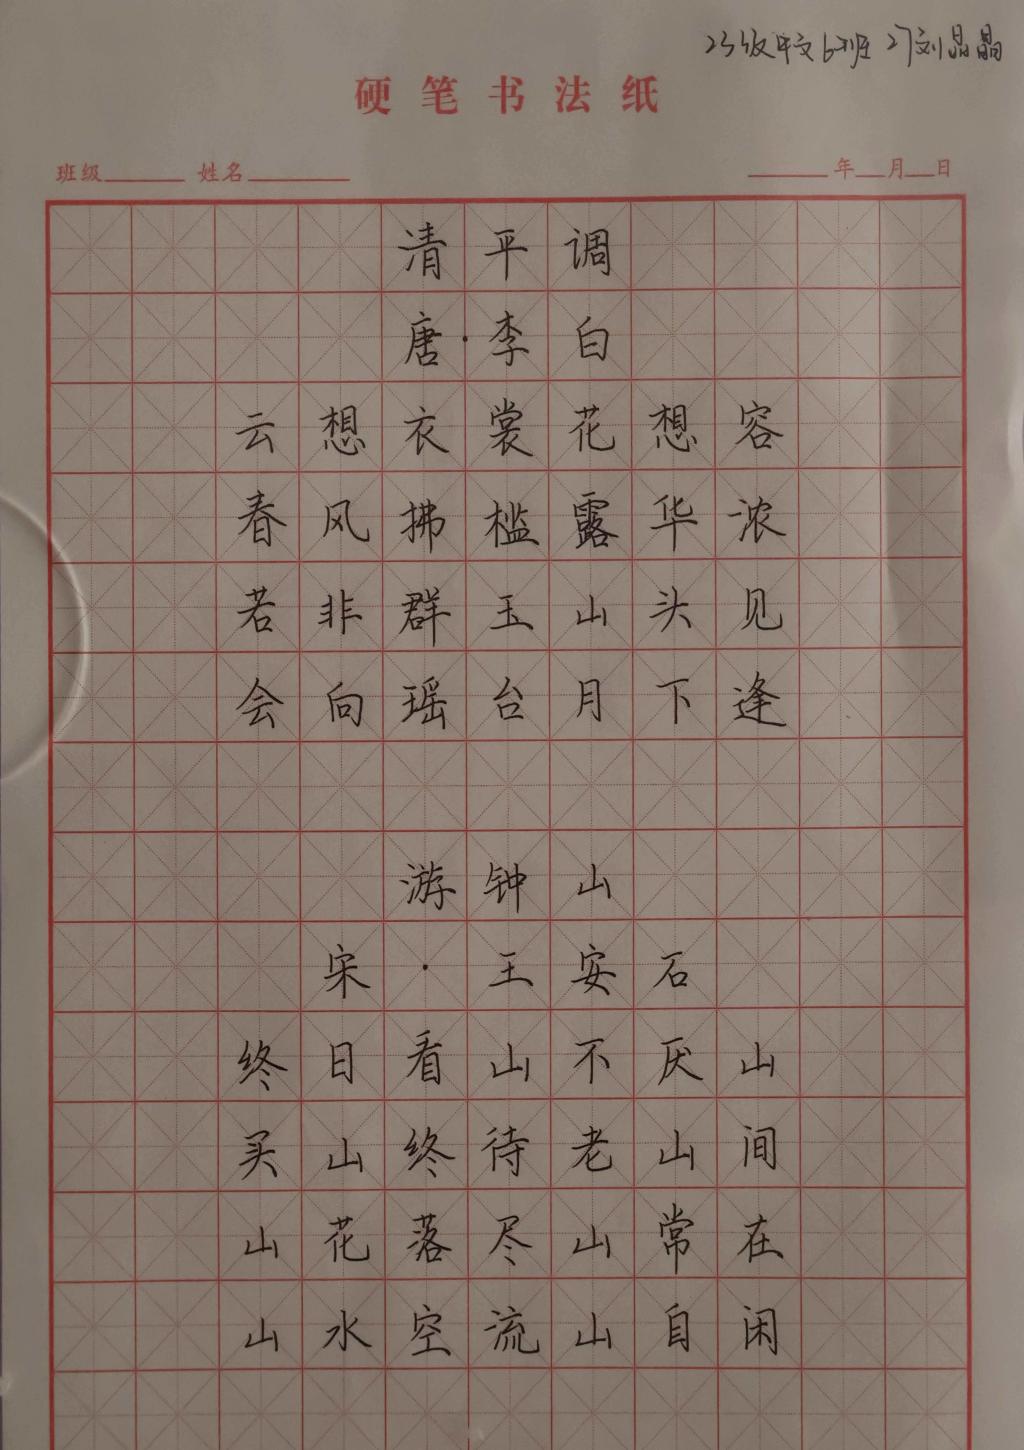 23级中文6班 27刘晶晶
硬笔书法纸
班级 姓名 年 月 日
清平调
唐·李白
云想衣裳花想容
春风拂槛露华浓
若非群玉山头见
会向瑶台月下逢
游钟山
宋·王安石
终日看山不厌山
买山终待老山间
山花落尽山常在
山水空流山自闲